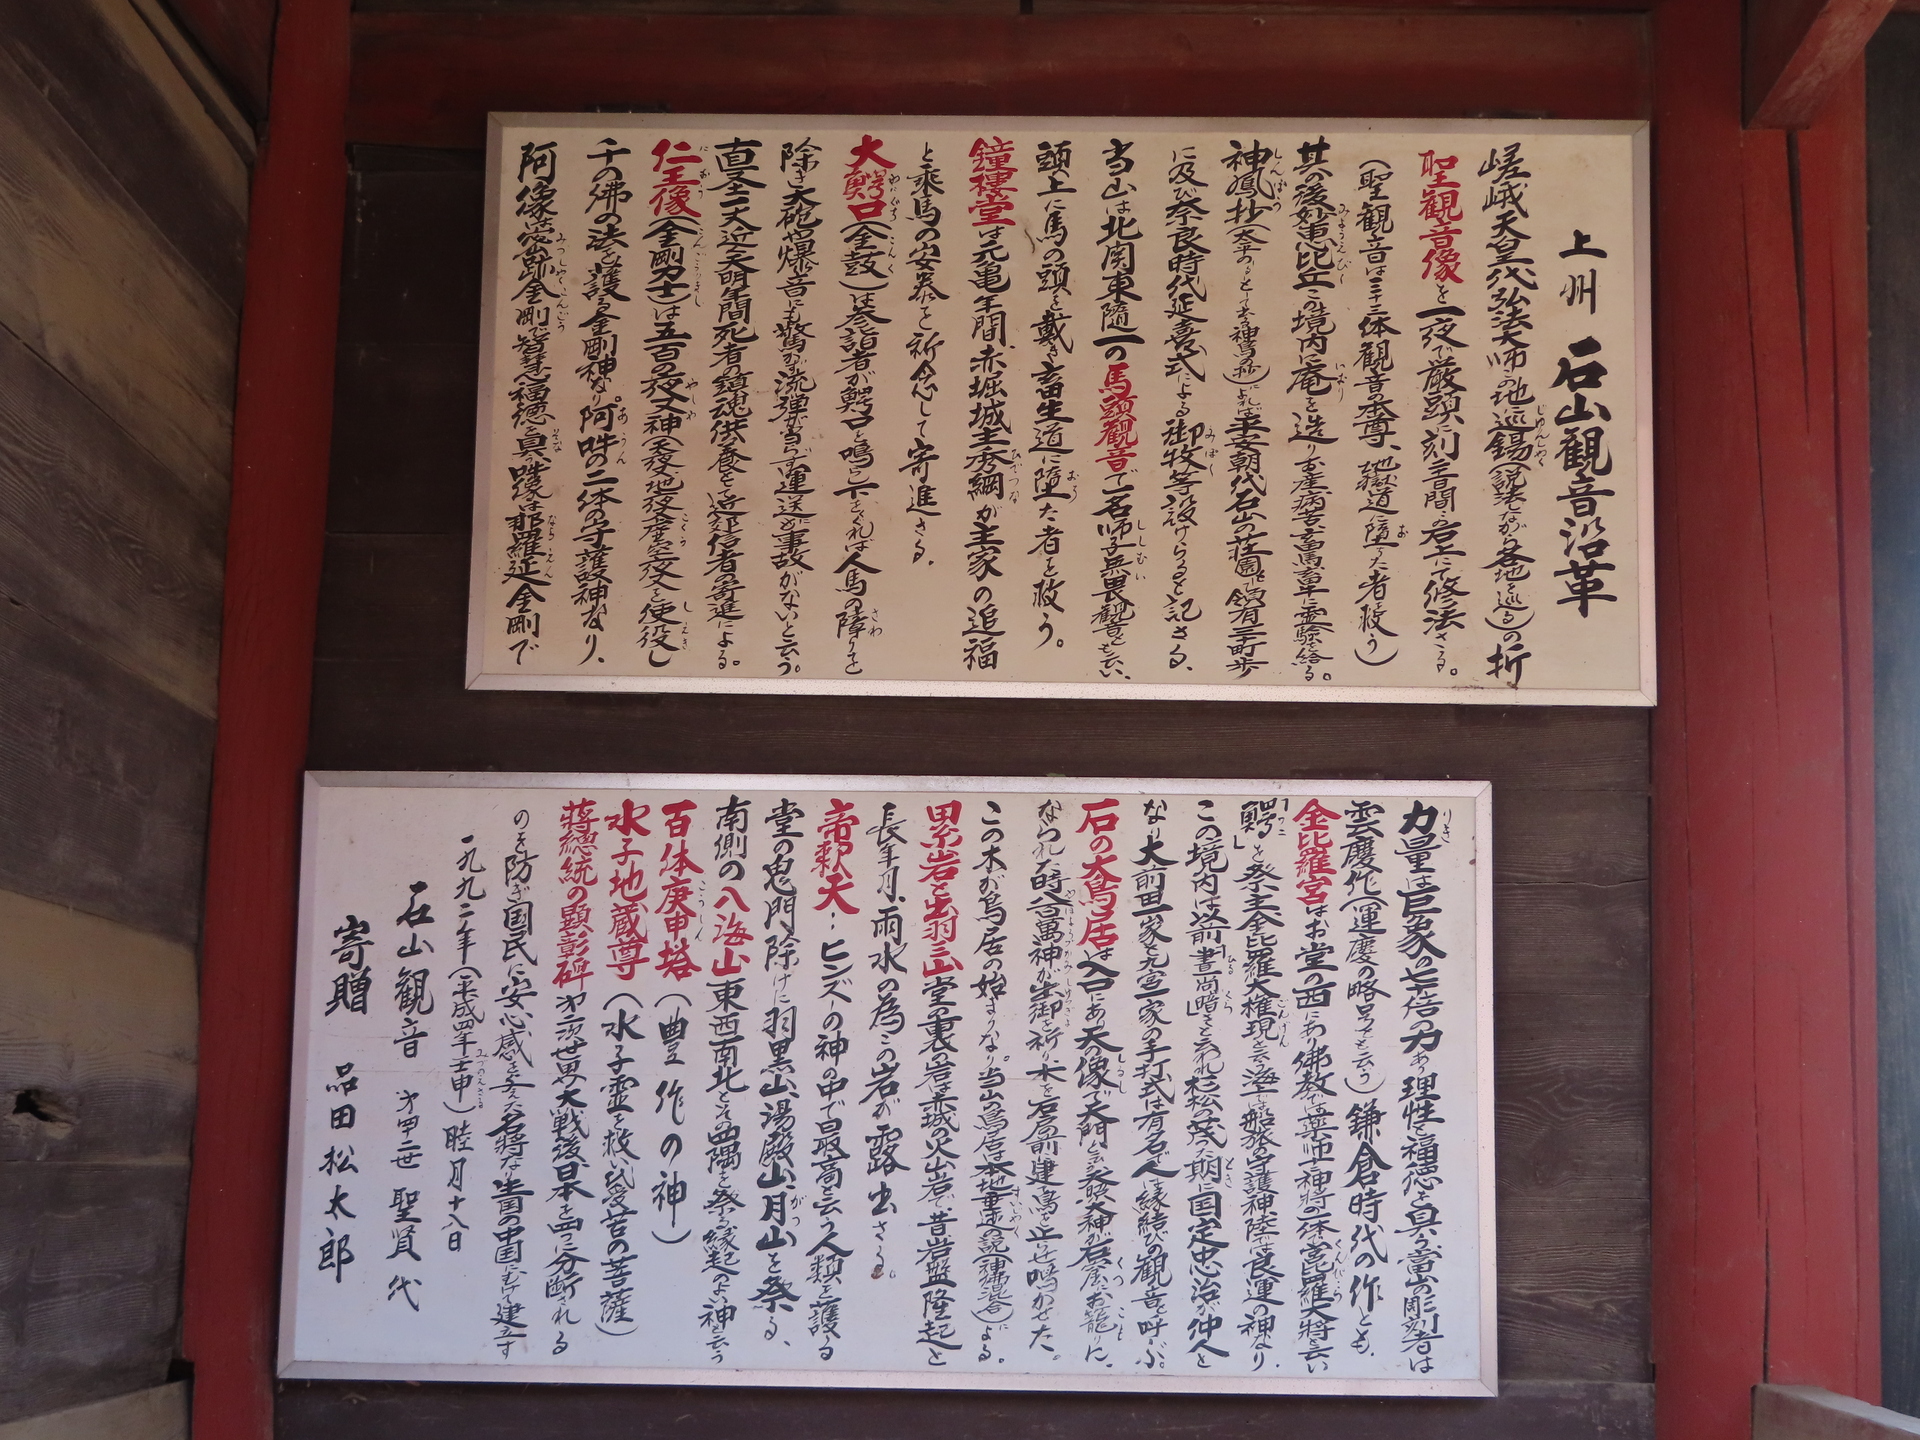 上州 石山観音沿革
嵯峨天皇代弘法大師この地巡錫(説法しながら各地を巡る)の折
聖観音像を一夜で厳頭に刻三音間の岩上にて修法さる。
(聖観音は三十三体観音の本尊、地獄道に墮ちた者を救う)
其の後妙恵比丘この境内に庵を造りお産病苦去畜馬畜革に霊験を給る。
神鳳抄によれば平安朝代石山の荘園で領有三町歩
に及び奈良時代延喜式による御牧等設けらると記さる、
当山は北関東随一の馬頭観音で一名師子無畏観音とも云い、
頭上に馬の頭を戴き畜生道に墮た者を救う。
鐘楼堂は元亀年間、赤堀城主秀綱が主家の追福
と乗馬の安泰を祈念して寄進さる。
大鰐口(金鼓)は参詣者が鰐口を鳴らし下をくぐれば人馬の障りを
除き大砲や爆音にも驚かず流弾が当らず運送など事故がないと云う。
直径一丈近く天明年間死者の鎮魂供養として近郊信者の寄進による。
仁王像(金剛力士)は五百の夜叉神(天夜叉地夜叉虚空夜叉)を使役し
千の佛の法を護る金剛神なり。阿吽の二体の守護神なり、
阿像は密迹金剛で智慧福徳を具え吽像は那羅延金剛で
力量は巨象の七十倍の力あり理性と福徳を具う、當山の彫刻者は
雲慶作(運慶の略号とも云う)鎌倉時代の作とも、
金比羅宮はお堂の西にあり佛教では薬師十二神将の一体で宮毘羅大将と云い
「鰐」を祭主金比羅大権現と云う海上では船旅の守護神、陸では良運の神なり、
この境内は以前「晝尚暗き」と云われ杉松の茂った期に国定忠治が仲人と
なり大前田一家と九宮一家の手打式は有名で人は縁結びの観音と呼ぶ。
石の大鳥居は入口にあり天の像で大門と云い天照大神が石屋にお籠りに、
なられた時八百萬神が出御を祈り木を石屋の前に建て鳥を止らせ鳴かせた。
この木が鳥居の始まりなり。当山の鳥居は本地垂迹の説(神佛混合)による。
男糸岩と出羽三山堂の裏の岩は赤城の火山岩で、昔岩盤隆起と
長年月、雨水の為この岩が露出さる。
帝釈天:ヒンズーの神の中で最高と云う人類を護る
堂の鬼門除けに羽黒山、湯殿山、月山を祭る、
南側の八海山東西南北とその四隅を祭る縁起のよい神と云う
百体庚申塔(豊作の神)
水子地蔵尊(水子霊を救い代受苦の菩薩)
蒋總統の顕彰碑 第二次世界大戦後日本を四つに分断される
のを防ぎ国民に安心感を与えた名将なり、生国の中国にむけて建立す
一九九二年(平成四年壬申)睦月十八日
石山観音 第四十二世 聖賢代
寄贈 品田松太郎